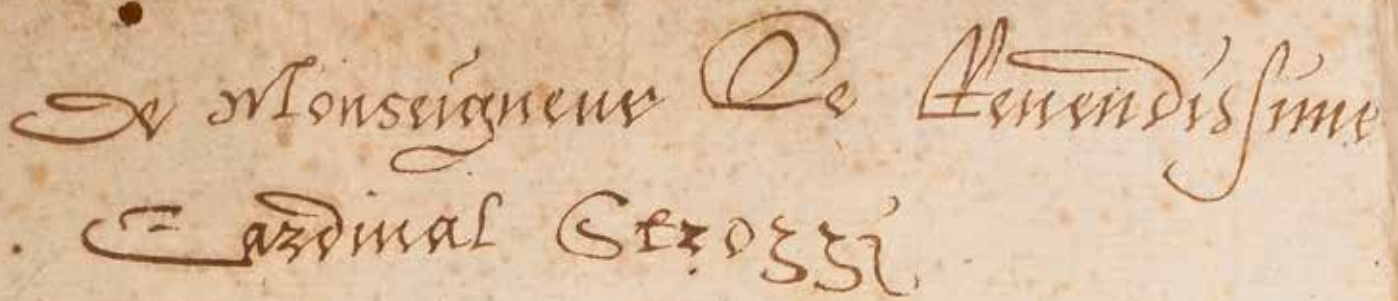 De Monseigneur Le Reuendissime
Cardinal Strozzi